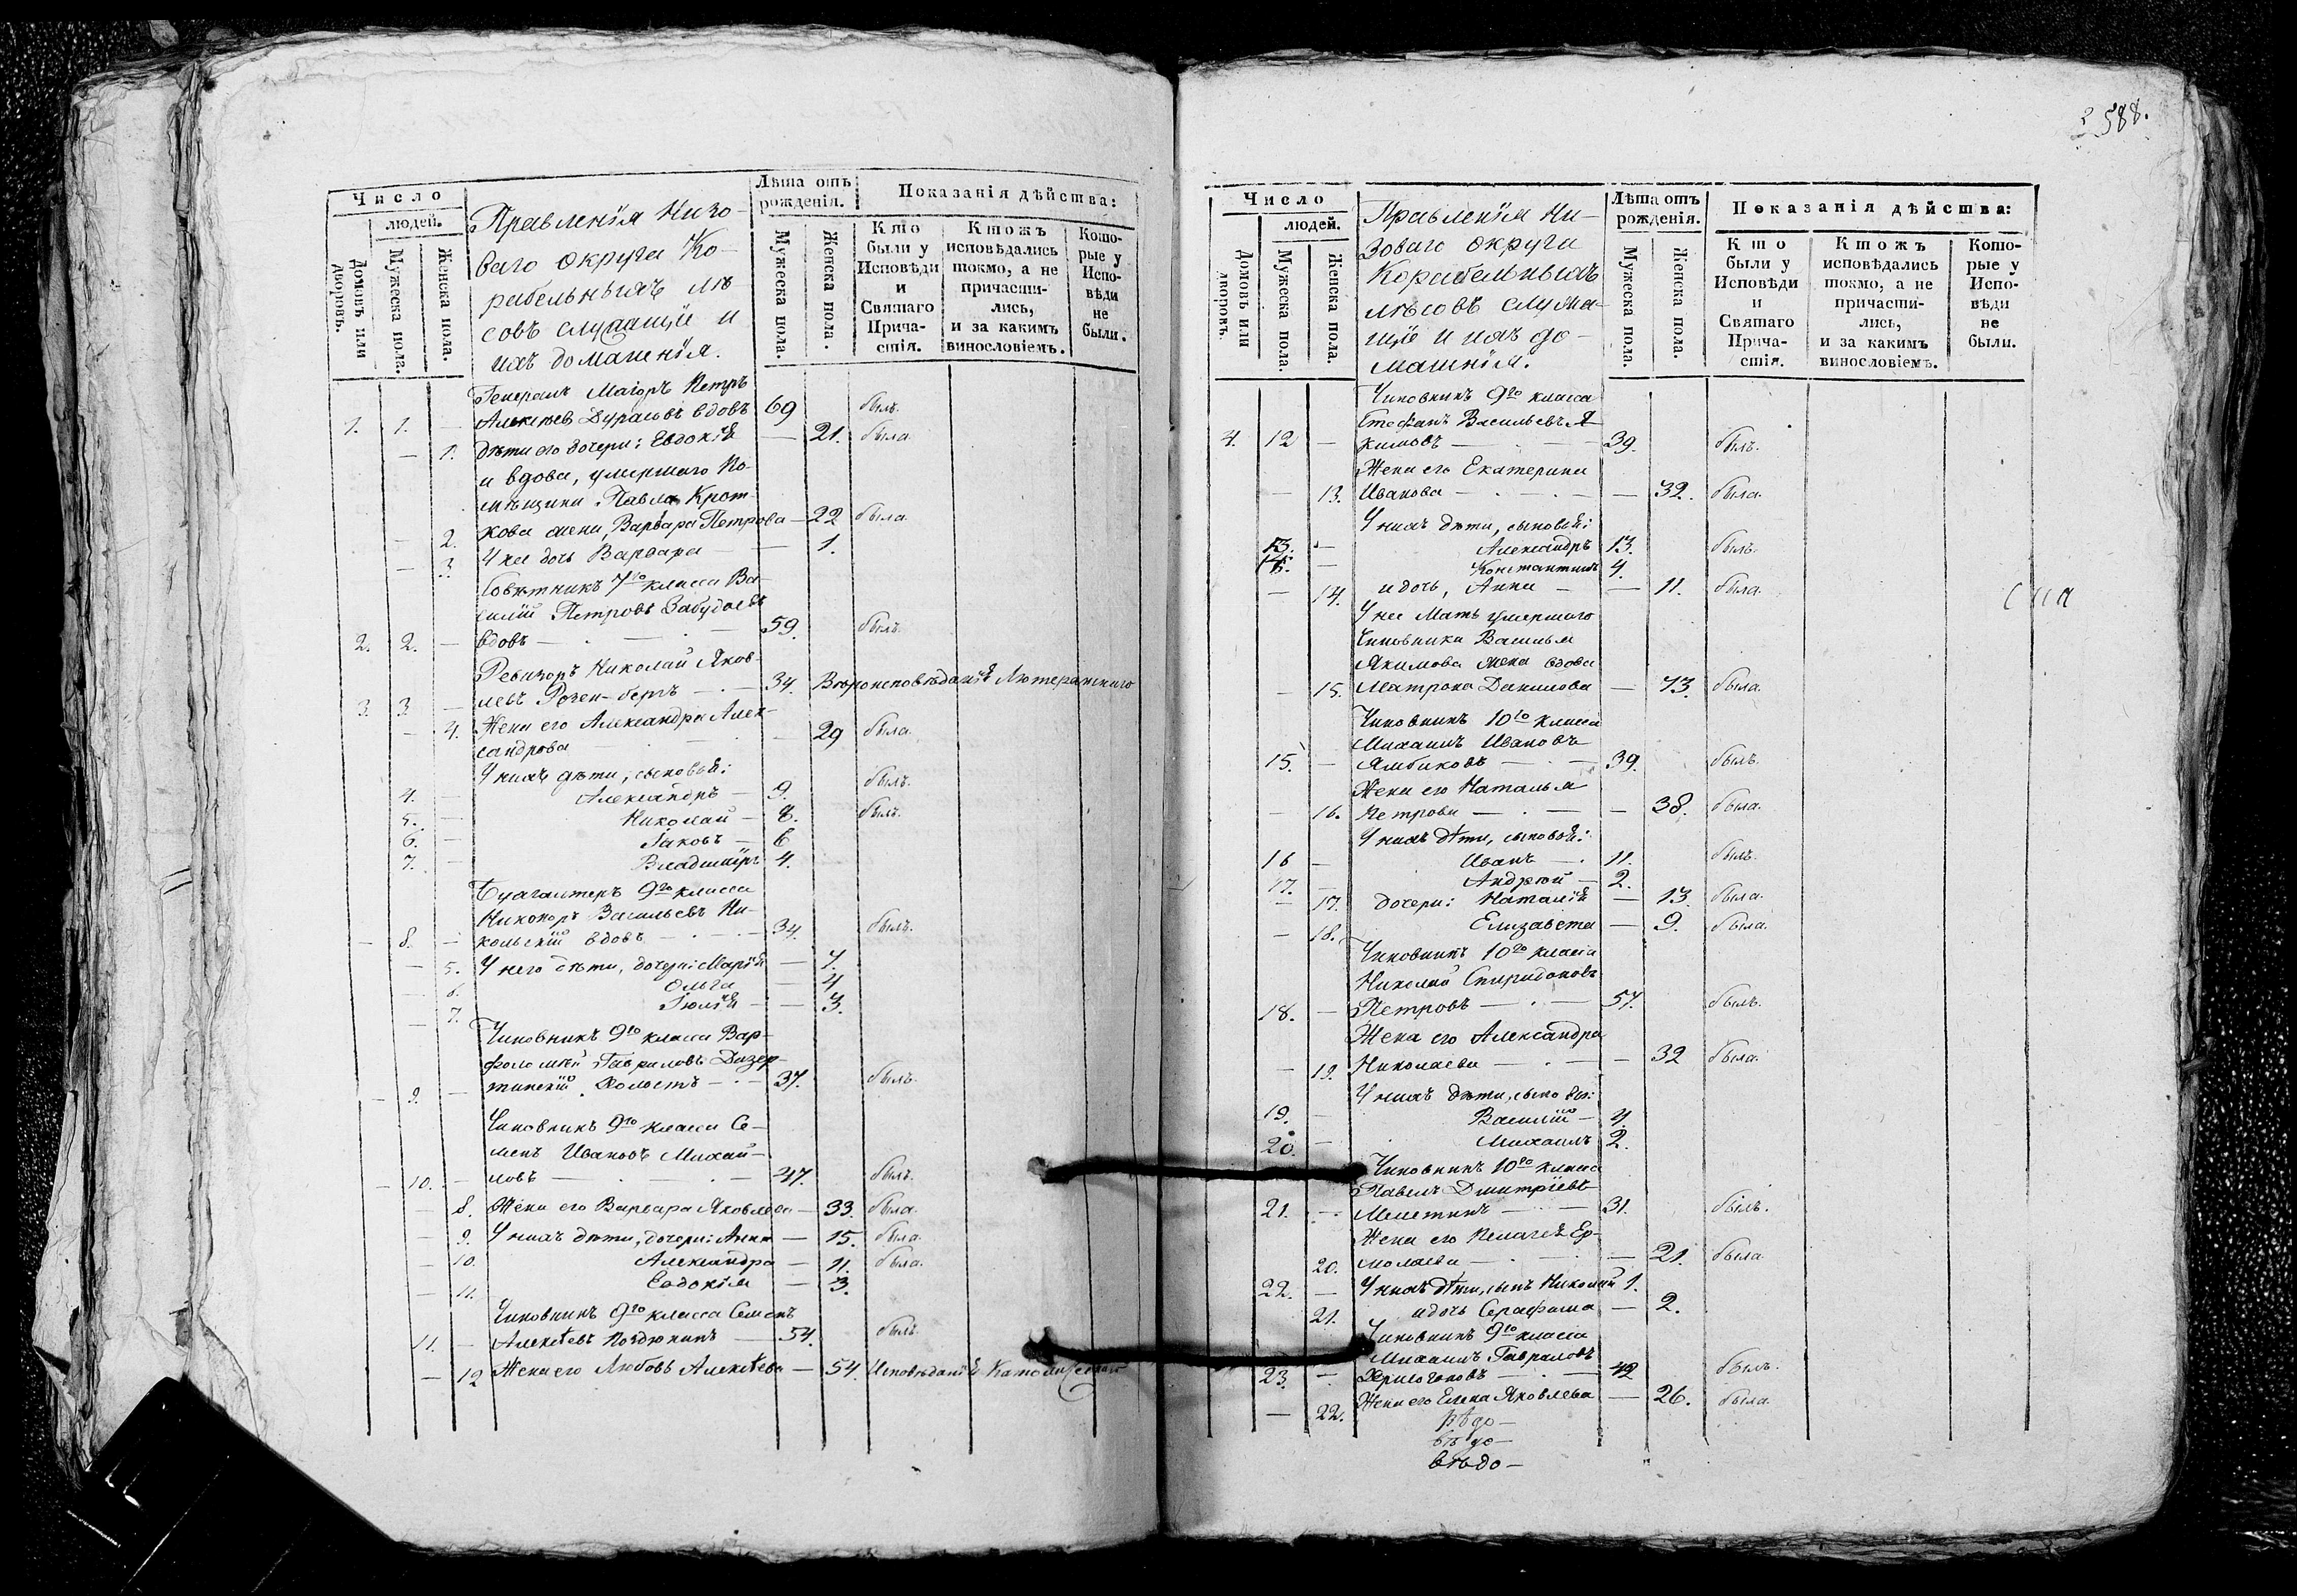 Число
людей.
Домовъ или дворовъ.
Мужеска пола.
Женска пола.
Правленія Низо-
ваго округа Ко-
рабельныхъ лѣ
совъ служащіе и
ихъ домашнія.
Лѣта отъ рожденія.
Мужеска пола.
Женска пола.
Показанія дѣйства:
Кто были у Исповѣди и Святаго Прича-стія.
Ктожъ исповѣдались токмо, а не причасти-лись, и за какимъ винословіемъ.
Кото-рые у Испо-вѣди не были.
Генералъ Маіоръ Петръ
1. 1. — Алексѣевъ вдовъ 69 былъ.
— 1. дѣти его дочери: Евдокія — 21. была
и вдова, умершаго По-
мѣщика Павла Крот-
— 2. кова жена, Варвара Петрова — 22 была.
— 3. У нея дочь Варвара — — 1.
Совѣтникъ 7го класса Ва-
силій Петровъ
2. 2. — вдовъ — . — . — 59. былъ.
Ревизоръ Николай Яков-
3. 3. — левъ Розен-бергъ — . — 34. Вѣроисповѣданія Лютеранскаго
— 4. Жена его Александра Алек-
сандрова — . — . — — 29 была.
У нихъ дѣти, сыновья:
4. — Александръ — 9. былъ.
5. — Николай — 8. былъ.
6. — Іаковъ — 6
7. — Владиміръ 4.
Бухгалтеръ 9го класса
Никоноръ Васильевъ Ни-
— 8. — кольскій вдовъ — . — . — 34. былъ.
— 5. У него дѣти, дочери: Марія — 7.
6. Ольга — 4
— 7. Іюлія — — 3.
Чиновникъ 9го класса Вар-
фоломѣй Гавриловъ Дизер-
— 9. — тинскій, Холостъ — . — 37. былъ.
Чиновникъ 9го класса Се-
менъ Ивановъ Михай-
— 10. — ловъ — . — . — 47. былъ.
— 8. Жена его Варвара Яковлева — 33. была.
— 9. У нихъ дѣти, дочери: Анна — 15. была.
— 10. Александра — 11. была.
— 11. Евдокія — 3.
Чиновникъ 9го класса Семенъ
11. — Алексѣевъ Поздюнинъ — 54. былъ.
— 12 Жена его Любовь Алексѣева — 54. Исповѣданія Католическаго
588.
Число
людей.
Домовъ или дворовъ.
Мужеска пола.
Женска пола.
Правленія Ни-
зоваго округа
Корабельныхъ
лѣсовъ служа-
щіе и ихъ до-
машнія.
Лѣта отъ рожденія.
Мужеска пола.
Женска пола.
Показанія дѣйства:
Кто были у Исповѣди и Святаго Прича-стія.
Ктожъ исповѣдались токмо, а не причасти-лись, и за какимъ винословіемъ.
Кото-рые у Испо-вѣди не были.
Чиновникъ 9го класса
Стефанъ Васильевъ Я-
4. 12 — кимовъ — . — 39. былъ.
Жена его Екатерина
— 13. Иванова — . — . — — 32. была.
У нихъ дѣти, сыновья:
13. — Александръ 13. былъ.
— Константинъ 4.
— 14. и дочь, Анна — — 11. была.
У нее Мать умершаго
Чиновника Василья
Якимова жена вдова
— 15. Матрона Данилова — 73. была.
Чиновникъ 10го класса
Михаилъ Ивановъ
15. — Ямбиковъ — . — 39. былъ.
Жена его Наталья
— 16. Петрова — . — — 38. была.
У нихъ дѣти, сыновья:
16 — Иванъ — . 11. былъ.
17. — Андрей — 2.
— 17. дочери: Наталія — 13. была.
— 18. Елизавета — 9. была.
Чиновникъ 10го класса
Николай Спиридоновъ
18. — Петровъ — . — 57. былъ.
Жена его Александра
— 19. Николаева — . — — 32 была.
У нихъ дѣти, сыновья:
19. — Василій — 4.
20. — Михаилъ 2.
Чиновникъ 10го класса
Павелъ Дмитріевъ
21. — — . — 31. былъ.
Жена его Пелагея Ер-
20. молаева — . — — 21. была.
22. — У нихъ дѣти, сынъ Николай 1.
21. и дочь Серафима — 2.
Чиновникъ 9го класса
Михаилъ Гавриловъ
23. — — . — 42 былъ.
— 22. Жена его Елена Яковлева — 26. была.
вѣдо-
вѣдо-